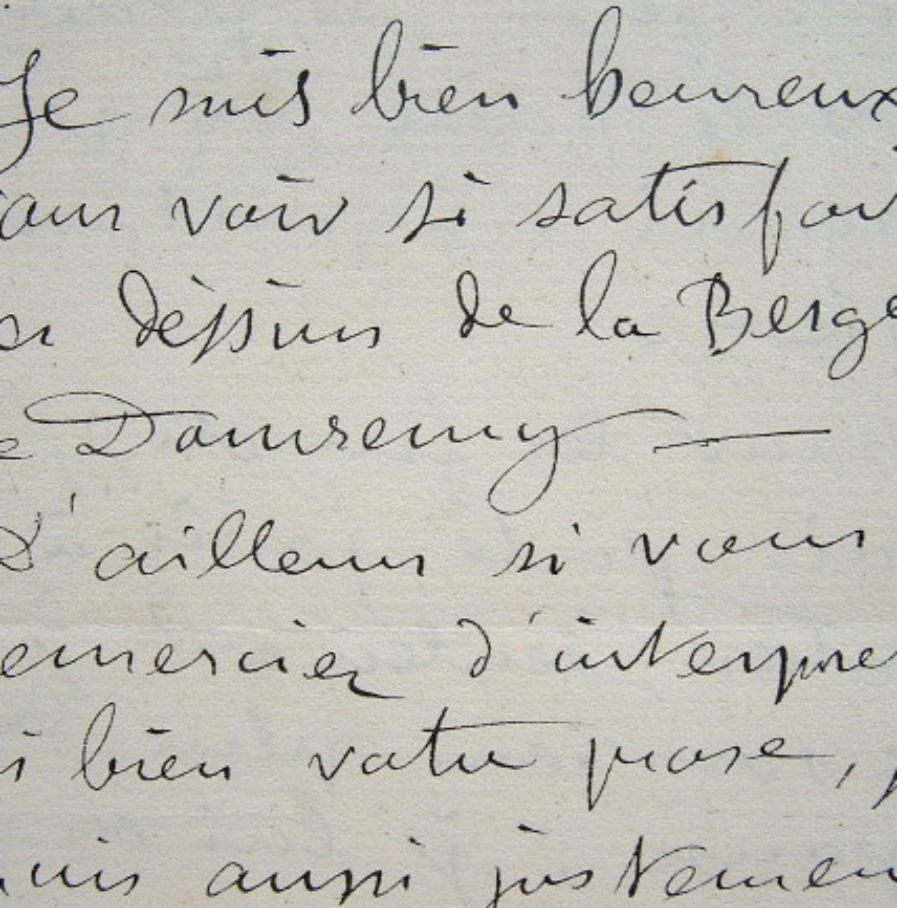 Je suis bien heureux
vous voir si satisfai
es dessins de la Bergè
e Domremy —
D'ailleurs si vous
emerciez d'interpré
si bien votre prose, j
uis aussi justemen